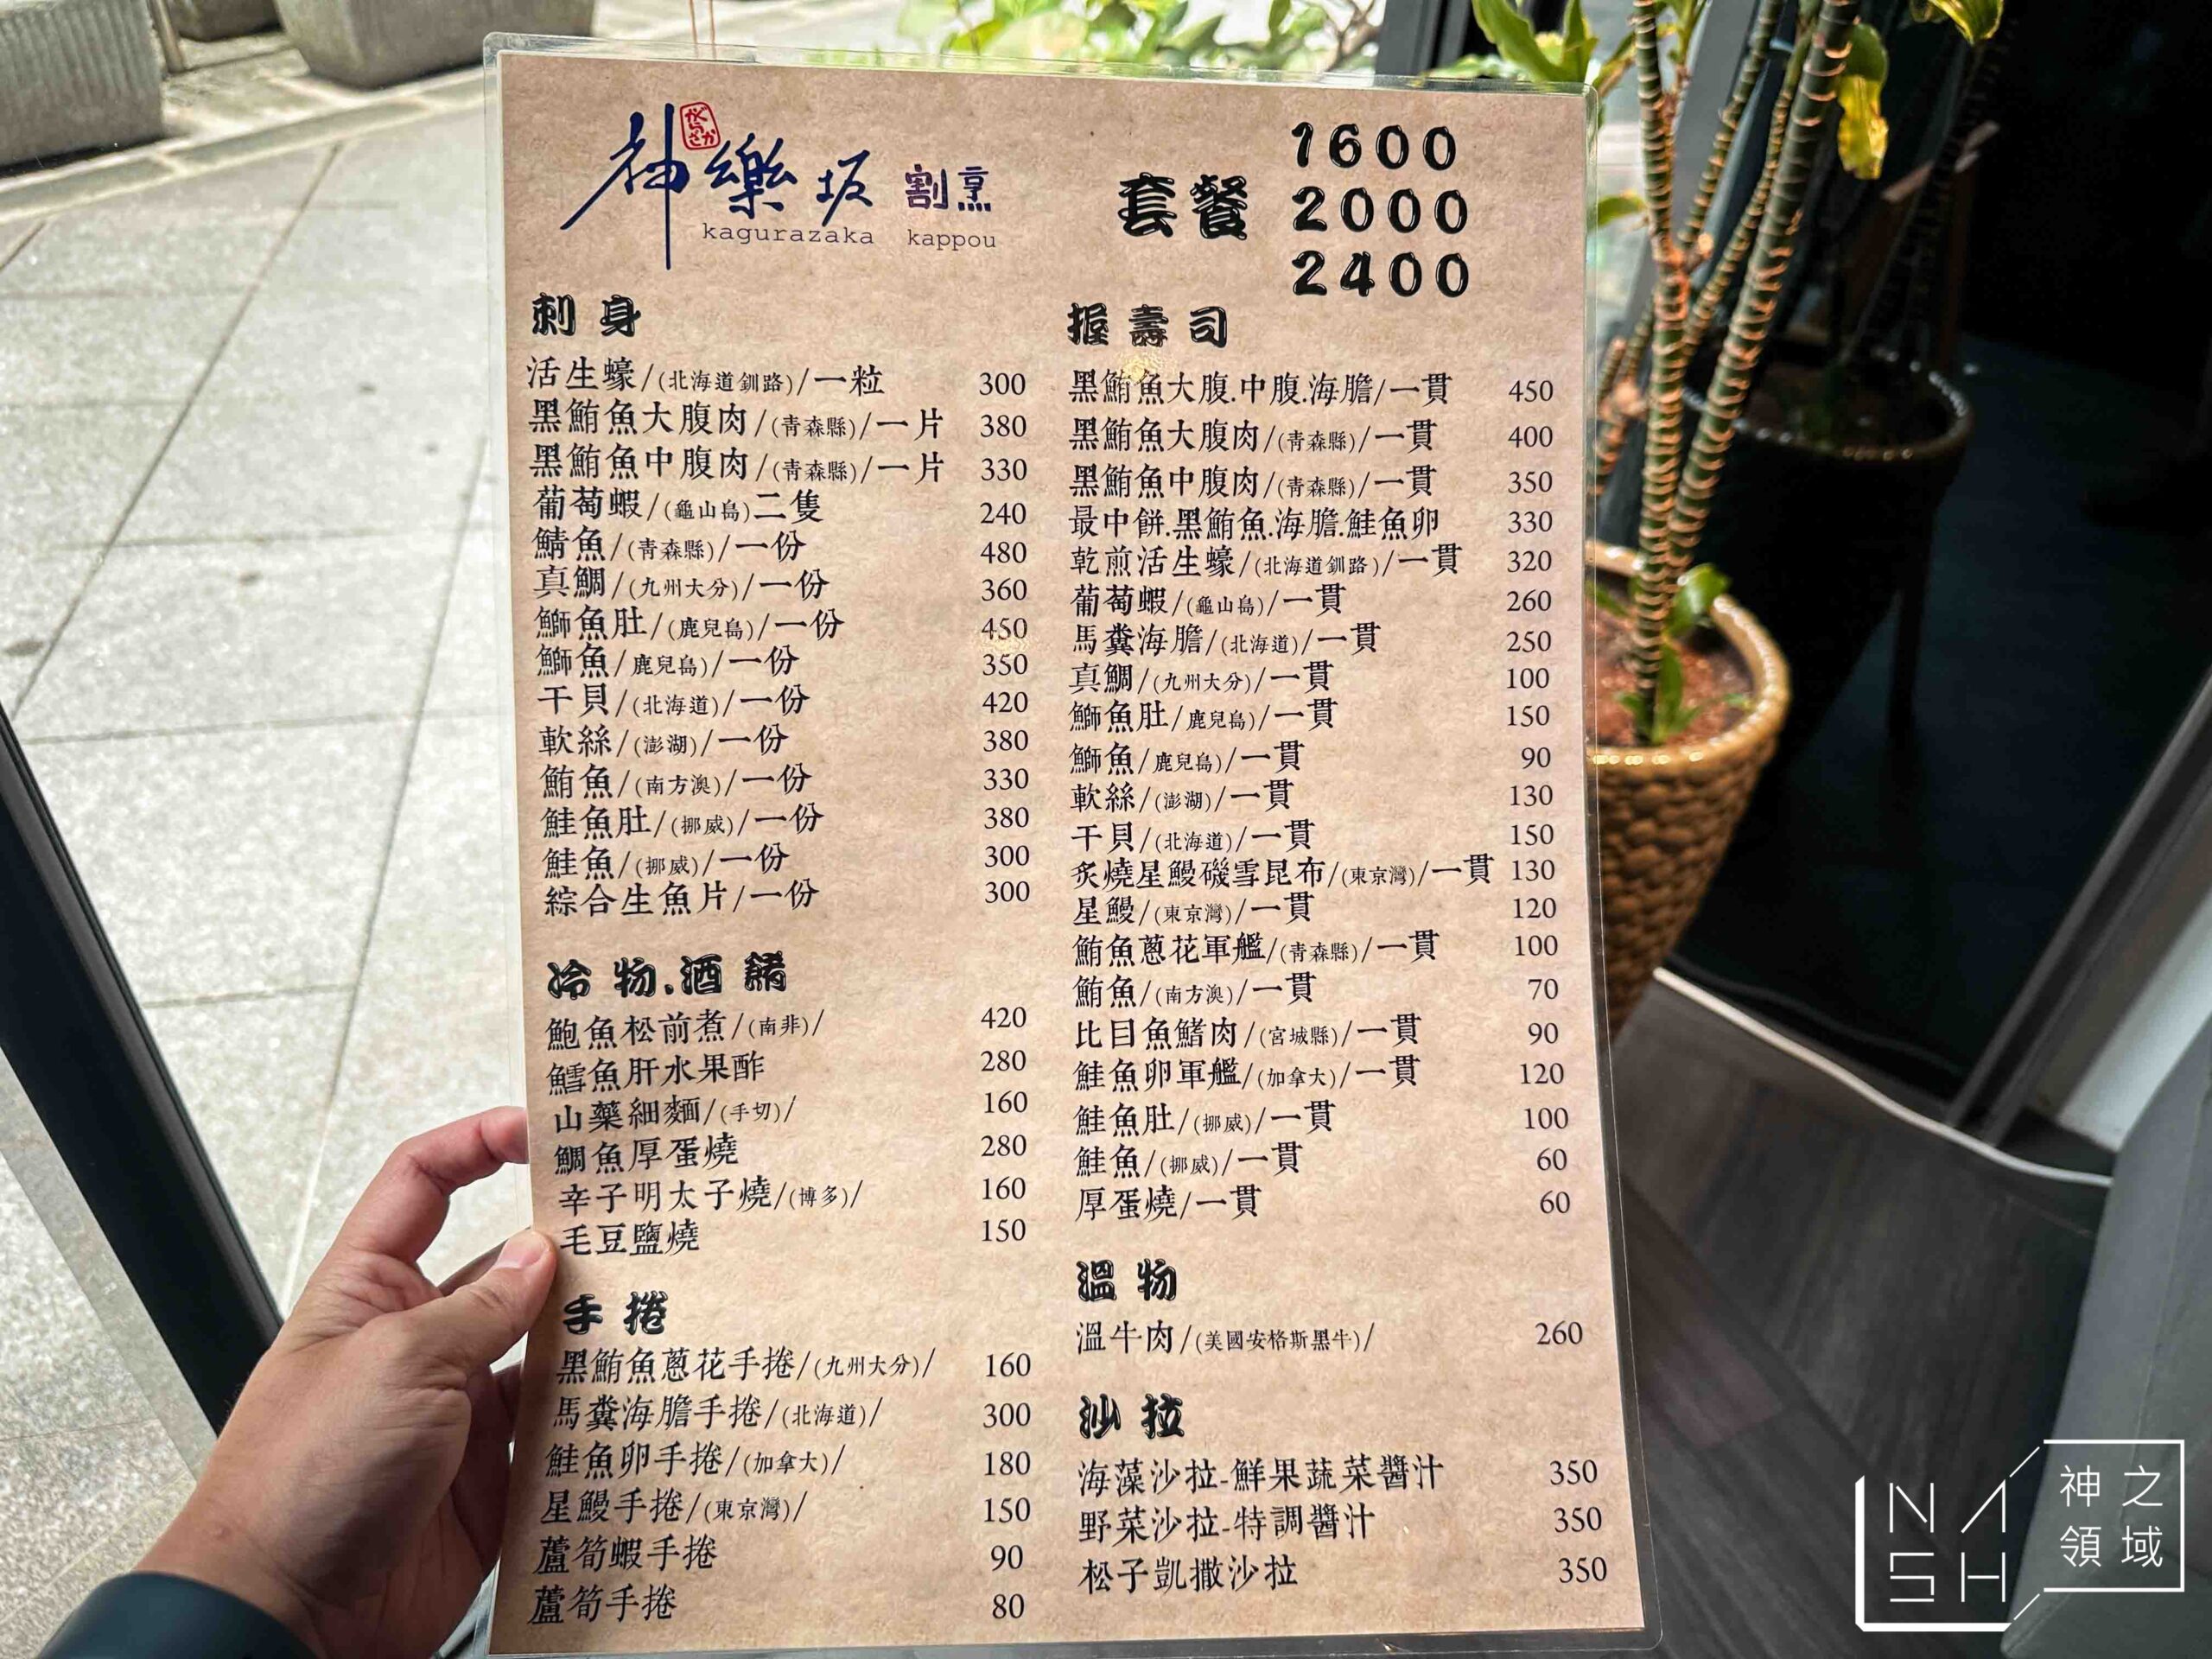 神樂坂 割烹
かぐらざか
kagurazaka kappou
套餐
1600
2000
2400
刺身
活生蠔/(北海道釧路)/一粒 300
黑鮪魚大腹肉/(青森縣)/一片 380
黑鮪魚中腹肉/(青森縣)/一片 330
葡萄蝦/(龜山島)二隻 240
鯖魚/(青森縣)/一份 480
真鯛/(九州大分)/一份 360
鰤魚肚/(鹿兒島)/一份 450
鰤魚/鹿兒島)/一份 350
干貝/(北海道)/一份 420
軟絲/(澎湖)/一份 380
鮪魚/(南方澳)/一份 330
鮭魚肚/(挪威)/一份 380
鮭魚/(挪威)/一份 300
綜合生魚片/一份 300
冷物.酒餚
鮑魚松前煮/(南非)/ 420
鱈魚肝水果酢 280
山藥細麵/(手切)/ 160
鯛魚厚蛋燒 280
辛子明太子燒/(博多)/ 160
毛豆鹽燒 150
手捲
黑鮪魚蔥花手捲/(九州大分)/ 160
馬糞海膽手捲/(北海道)/ 300
鮭魚卵手捲/(加拿大)/ 180
星鰻手捲/(東京灣)/ 150
蘆筍蝦手捲 90
蘆筍手捲 80
握壽司
黑鮪魚大腹.中腹.海膽/一貫 450
黑鮪魚大腹肉/(青森縣)/一貫 400
黑鮪魚中腹肉/(青森縣)/一貫 350
最中餅.黑鮪魚.海膽.鮭魚卵 330
乾煎活生蠔/(北海道釧路)/一貫 320
葡萄蝦/(龜山島)/一貫 260
馬糞海膽/(北海道)/一貫 250
真鯛/(九州大分)/一貫 100
鰤魚肚/鹿兒島)/一貫 150
鰤魚/鹿兒島)/一貫 90
軟絲/(澎湖)/一貫 130
干貝/(北海道)/一貫 150
炙燒星鰻磯雪昆布/(東京灣)/一貫 130
星鰻/(東京灣)/一貫 120
鮪魚蔥花軍艦/(青森縣)/一貫 100
鮪魚/(南方澳)/一貫 70
比目魚鰭肉/(宮城縣)/一貫 90
鮭魚卵軍艦/(加拿大)/一貫 120
鮭魚肚/(挪威)/一貫 100
鮭魚/(挪威)/一貫 60
厚蛋燒/一貫 60
溫物
溫牛肉/(美國安格斯黑牛)/ 260
沙拉
海藻沙拉-鮮果蔬菜醬汁 350
野菜沙拉-特調醬汁 350
松子凱撒沙拉 350
NASH
神之
領域